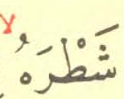 لا
شَطْرَهُ